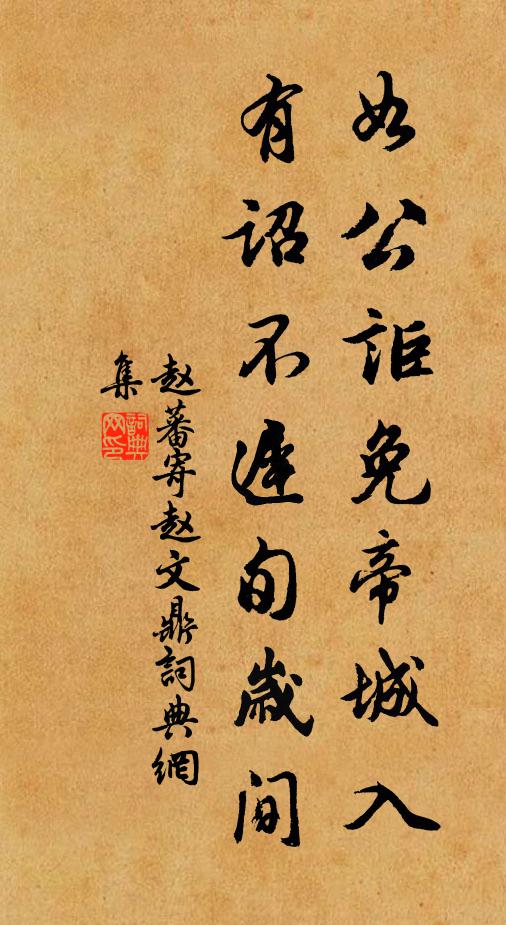 如公詎免帝城入
有詔不遲旬歲間
赵蕃寄赵文鼎詞典網
集
詞典
网印